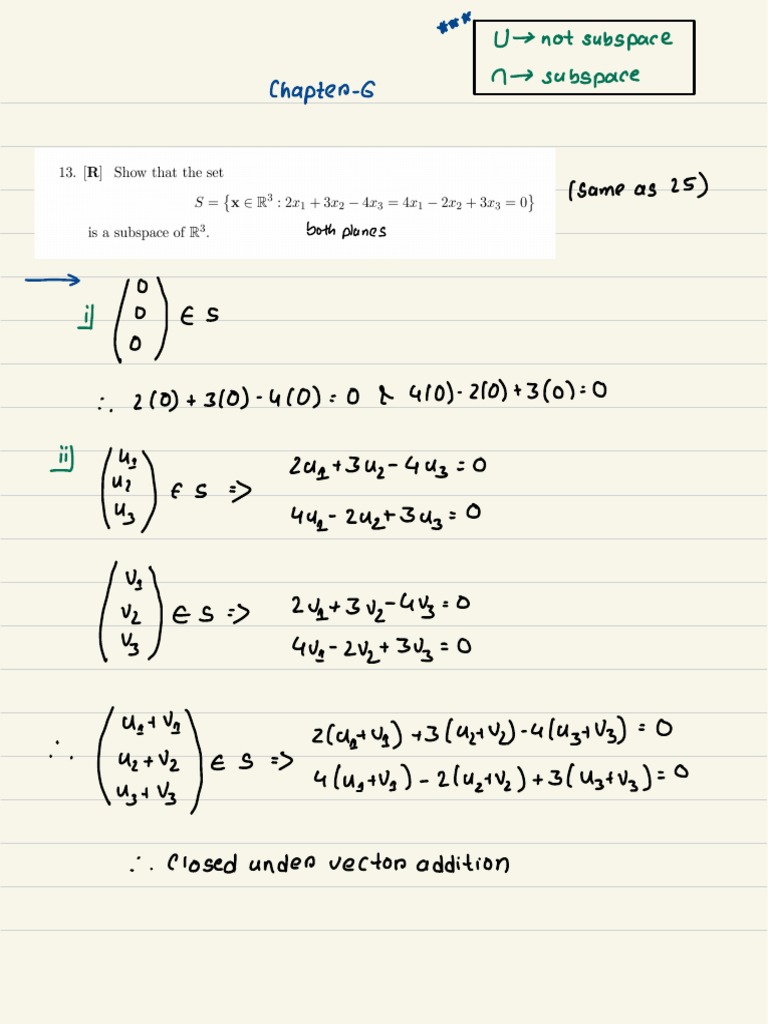 ***
U → not subspace
∩ → subspace
Chapter-6
13. [R] Show that the set
S = {x ∈ ℝ³ : 2x₁ + 3x₂ − 4x₃ = 4x₁ − 2x₂ + 3x₃ = 0}
(same as 25)
is a subspace of ℝ³.
both planes
→
i) (0 0 0) ∈ S
∴ 2(0) + 3(0) - 4(0) = 0 & 4(0) - 2(0) + 3(0) = 0
ii) (u₁ u₂ u₃) ∈ S => 2u₁ + 3u₂ - 4u₃ = 0
4u₁ - 2u₂ + 3u₃ = 0
(v₁ v₂ v₃) ∈ S => 2v₁ + 3v₂ - 4v₃ = 0
4v₁ - 2v₂ + 3v₃ = 0
∴ (u₁+v₁ u₂+v₂ u₃+v₃) ∈ S => 2(u₁+v₁) + 3(u₂+v₂) - 4(u₃+v₃) = 0
4(u₁+v₁) - 2(u₂+v₂) + 3(u₃+v₃) = 0
∴ Closed under vector addition